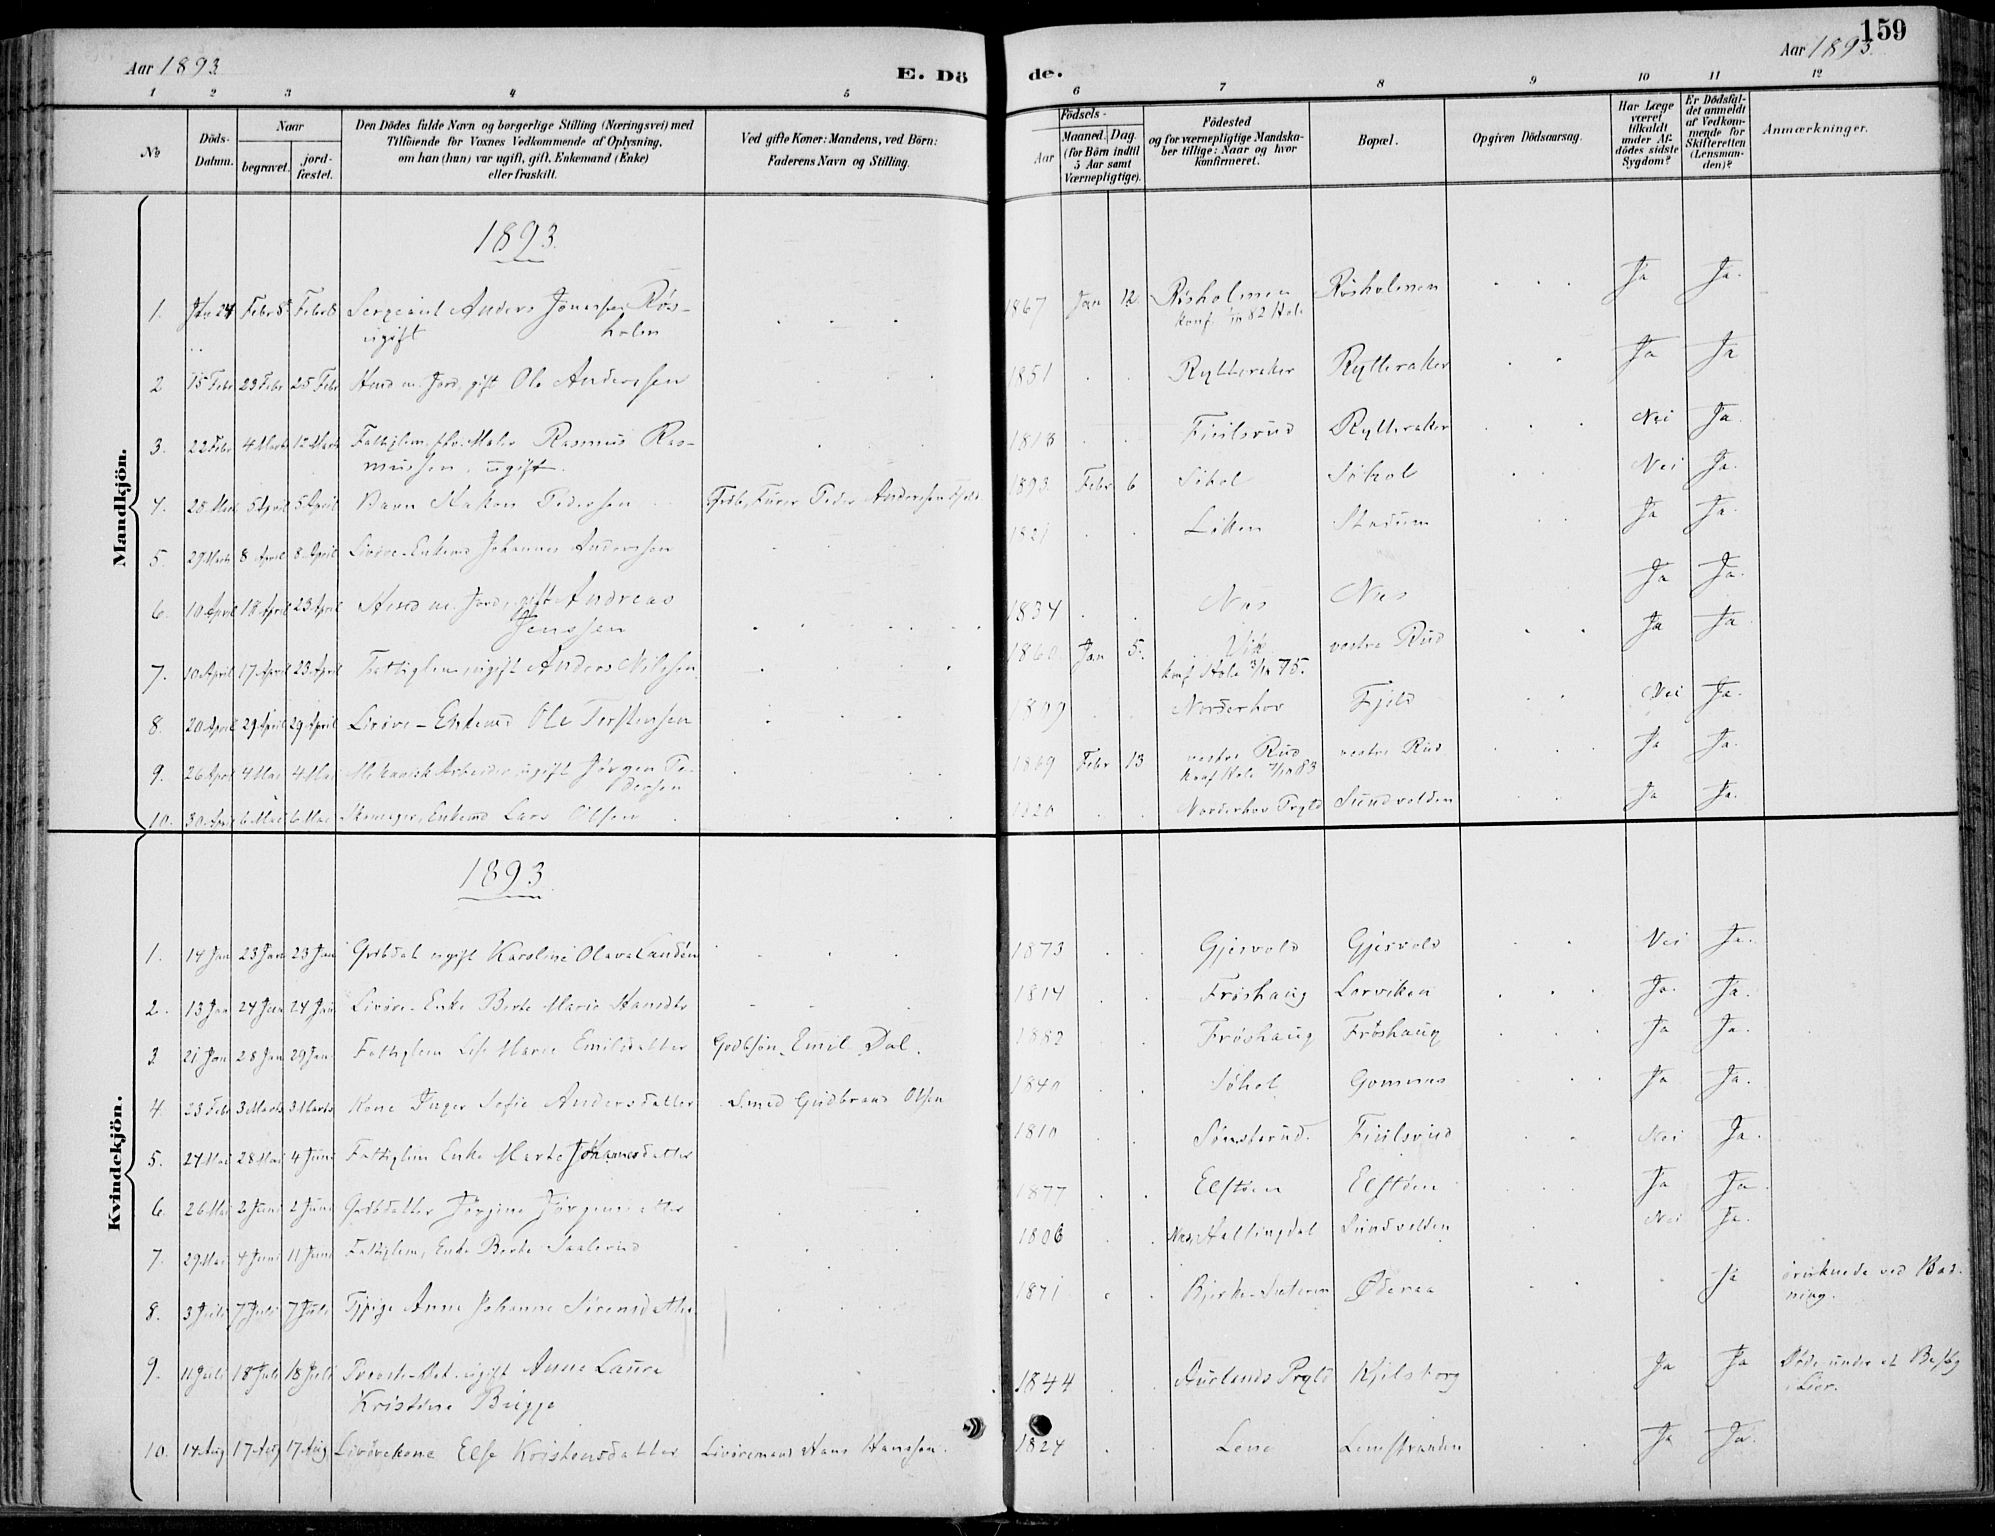 159
Aar 1893
E. Dö
de.
Aar 1893.
1 2 3 4 5 6 7 8 9 10 11 12
No
Döds-Datum.
Naar
begravet.
jord-fæstet.
Den Dödes fulde Navn og borgerlige Stilling (Næringsvei) med
Tilföiende for Voxnes Vedkommende af Oplysning,
om han (hun) var ugift, gift, Enkemand (Enke)
eller fraskilt.
Ved gifte Koner: Mandens, ved Börn:
Faderens Navn og Stilling.
Födsels-
Aar
Maaned. Dag.
(for Börn indtil
5 Aar samt
Værnepligtige).
Födested
og for værnepligtige Mandska-
ber tillige: Naar og hvor
konfirmeret.
Bopæl.
Opgiven Dödsaarsag.
Har Læge
været
tilkaldt
under Af-
dödes sidste
Sygdom?
Er Dödsfal-
det anmeldt
af Vedkom-
mende for
Skifteretten
(Lensman-
den)?
Anmærkninger.
Mandkjön.
1893.
1. 24 Febr 8 Febr 8 Sergeant Anders Røs- 1867 Jan 12. Røsholmen Røsholmen Ja Ja.
ugift holm konf 82 Hole
2 15 Febr 23 Febr 25 Febr Hmd m. Jord, gift Ole Anderssen 1851 Rytteraker Rytteraker Ja Ja
3. 22 Febr 4 Marts 12 Marts Fattiglem, Maler Rasmus Ras- 1818 Fiulsrud Rytteraker Nei Ja.
mussen, ugift.
4. 28 5 April 5 April Barn Hakon Pedersen Peder Anderssen 1893 Febr 6 Søhol Søhol Nei Ja.
5. 29 Marts 8 April 8 April Livøre-Enkemd Johannes Anderssen 1821 Løken Stadum Ja Ja.
6. 10 April 18 April 23 April Hmd m. Jord, gift Andreas 1834 Næs Næs Ja Ja.
Jenssen
7. 10 April 17 April 23 April Fattiglem ugift Anders Nilssen. 1860 Jan 5. Vik vestre Rud Ja Ja
konf Hole 75.
8. 20 April 29 April 29 April Livøre-Enkemd Ole Torstensen Norderhov Fjeld Nei Ja.
9. 26 April 4 Mai 4 Mai Mekanisk Arbeider ugift Jørgen Pe- 1869 Febr 13 vestre Rud vestre Rud Ja Ja.
dersen konf Hole 83
10. 30 April 6 Mai 6 Mai Enkemd Lars Olsen 1820 Norderhov Prgld Sundvolden Ja Ja.
Kvindekjön.
1893
1. 14 Jan 23 Jan 23 Jan Grdbdat ugift Karoline Olava 1873 Gjesvold Gjesvold Nei Ja.
2. 13 Jan 24 Jan 24 Jan Livøre-Enke Berte Marie Hansdtr 1814 Frøshaug Lorviken Ja Ja.
3 21 Jan 28 Jan 29 Jan Fattiglem Lise Marie Emilsdatter Emil Dal. 1882 Frøshaug Frøshaug Ja Ja.
4. 23 Febr 3 Marts 3 Marts Kone Inger Sofie Andersdatter Smed Gudbrand Olsen 1840 Søhol Gomnæs Ja Ja.
5. 24 Mai 28 Mai 4 Juni Fattiglem Enke Marte Johannesdatter 1810 Sønsterud Fiulsrud Nei Ja.
6. 26 Mai 2 Juni 2 Juni Grdbdatter Jørgine Jørgensdatter 1877 Elstøen Elstøen Ja Ja.
7. 29 Mai 4 Juni 11 Juni Fattiglem, Enke Berte 1806 Næs Hallingdal Sundvolden Nei Ja.
8. 3 Juli 7 Juli 7 Juli Tjpige Anne Johanne Sørensdatter 1871 Øderaa Ja druknede ved Bad-
ning.
9. 11 Juli 18 Juli 18 Juli ugift Anne Laura 1844 Aurlands Prgld Ja Ja Døde under et Besøg
Kristine Brigge i Lier.
10. 14 Aug 17 Aug 17 Aug Livørekone Else Kristensdatter Livøremand Hans Hanssen. 1824 Lene Lenestranden Ja Ja.